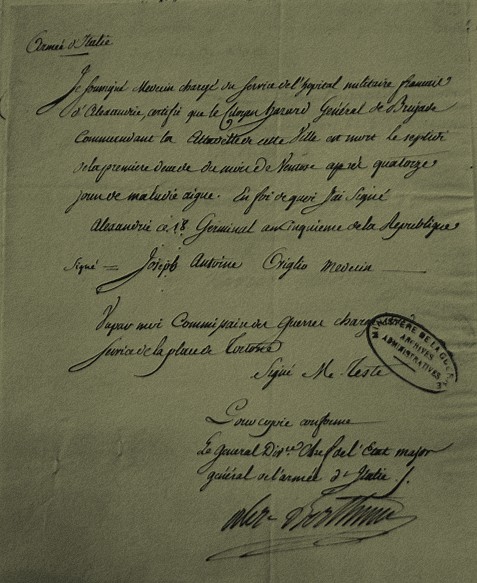 Armée d'Italie
Je soussigné Médecin chargé du Service de l'hopital militaire français
d'Alexandrie, certifie que le Citoyen Général de Brigade
Commandant la Citadelle de cette Ville est mort le septidi
de la premiere Decade du mois de Ventose après quatorze
jours de maladie aigue. En foi de quoi J'ai Signé
Alexandrie ce 18 Germinal an Cinquieme de la République
Signé = Joseph Antoine Origlio Medecin
Vu par moi Commissaire des Guerres chargé du
Service de la place de Tortone
Signé Mc. Teste
Pour copie conforme
Le general Divre Chef de l'Etat major
général de l'armée d'Italie
MINISTÈRE DE LA GUERRE
ARCHIVES
ADMINISTRATIVES
Alex. Berthier